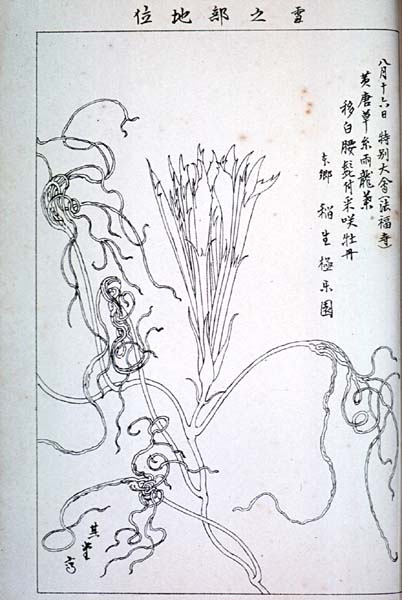 雪之部地位
八月十六日 特別大會(法福寺)
黄唐草糸雨龍葉
移白腰髭付采咲牡丹
稲生極楽園